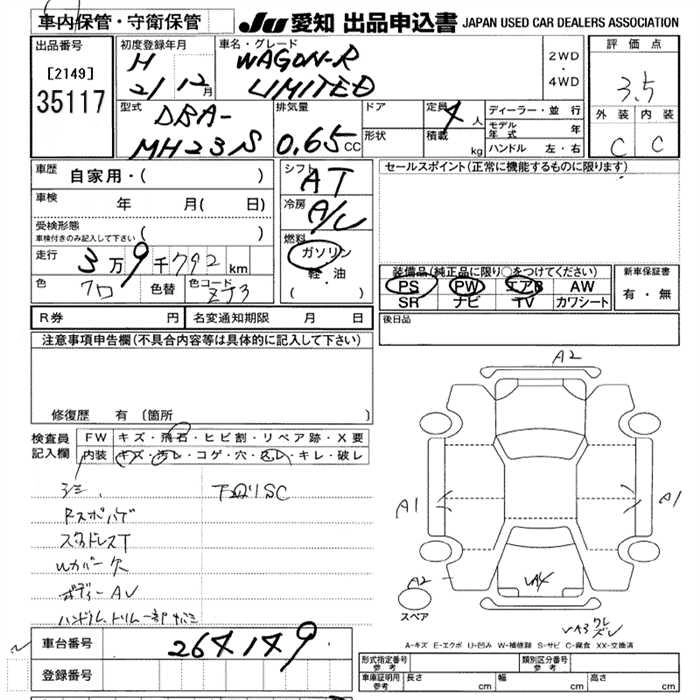 車内保管・守衛保管
JU 愛知 出品申込書 JAPAN USED CAR DEALERS ASSOCIATION
出品番号
[2149]
35117
初度登録年月
H
21/12月
車名・グレード
WAGON-R
LIMITED
2WD
・
4WD
評価点
3.5
外装 内装
C C
型式
DBA-
MH23S
排気量
0.65CC
ドア
形状
定員 4人
積載 kg
ディーラー・並行
モデル年式 年
ハンドル 左・右
車歴
自家用・( )
車検 年 月( 日)
受検形態
車検付きのみ記入して下さい ( )
走行 3万9千792km
色 クロ 色替 色コード ZJ3
シフト
AT
冷房
A/C
燃料
ガソリン
軽・油
( )
セールスポイント(正常に機能するものに限ります)
装備品(純正品に限り○をつけてください)
PS PW エアB AW
SR ナビ TV カワシート
新車保証書
有・無
R券 円 名変通知期限 月 日
後日品
注意事項申告欄(不具合内容等は具体的に記入して下さい)
修復歴 有(箇所 )
検査員
記入欄
FW キズ・飛石・ヒビ割・リペア跡・X要
内装 キズ・汚レ・コゲ・穴・凹レ・キレ・破レ
シミ
スタッドレスT
Wカバー欠
ボディーAU
A2
A1
A1
A2
スペア
A-キズ E-エクボ U-凹み W-補修跡 S-サビ C-腐食 XX-交換済
車台番号 264149
登録番号
形式指定番号 参考
類別区分番号 参考
車庫証明用 参考 長さ cm 幅 cm 高さ cm